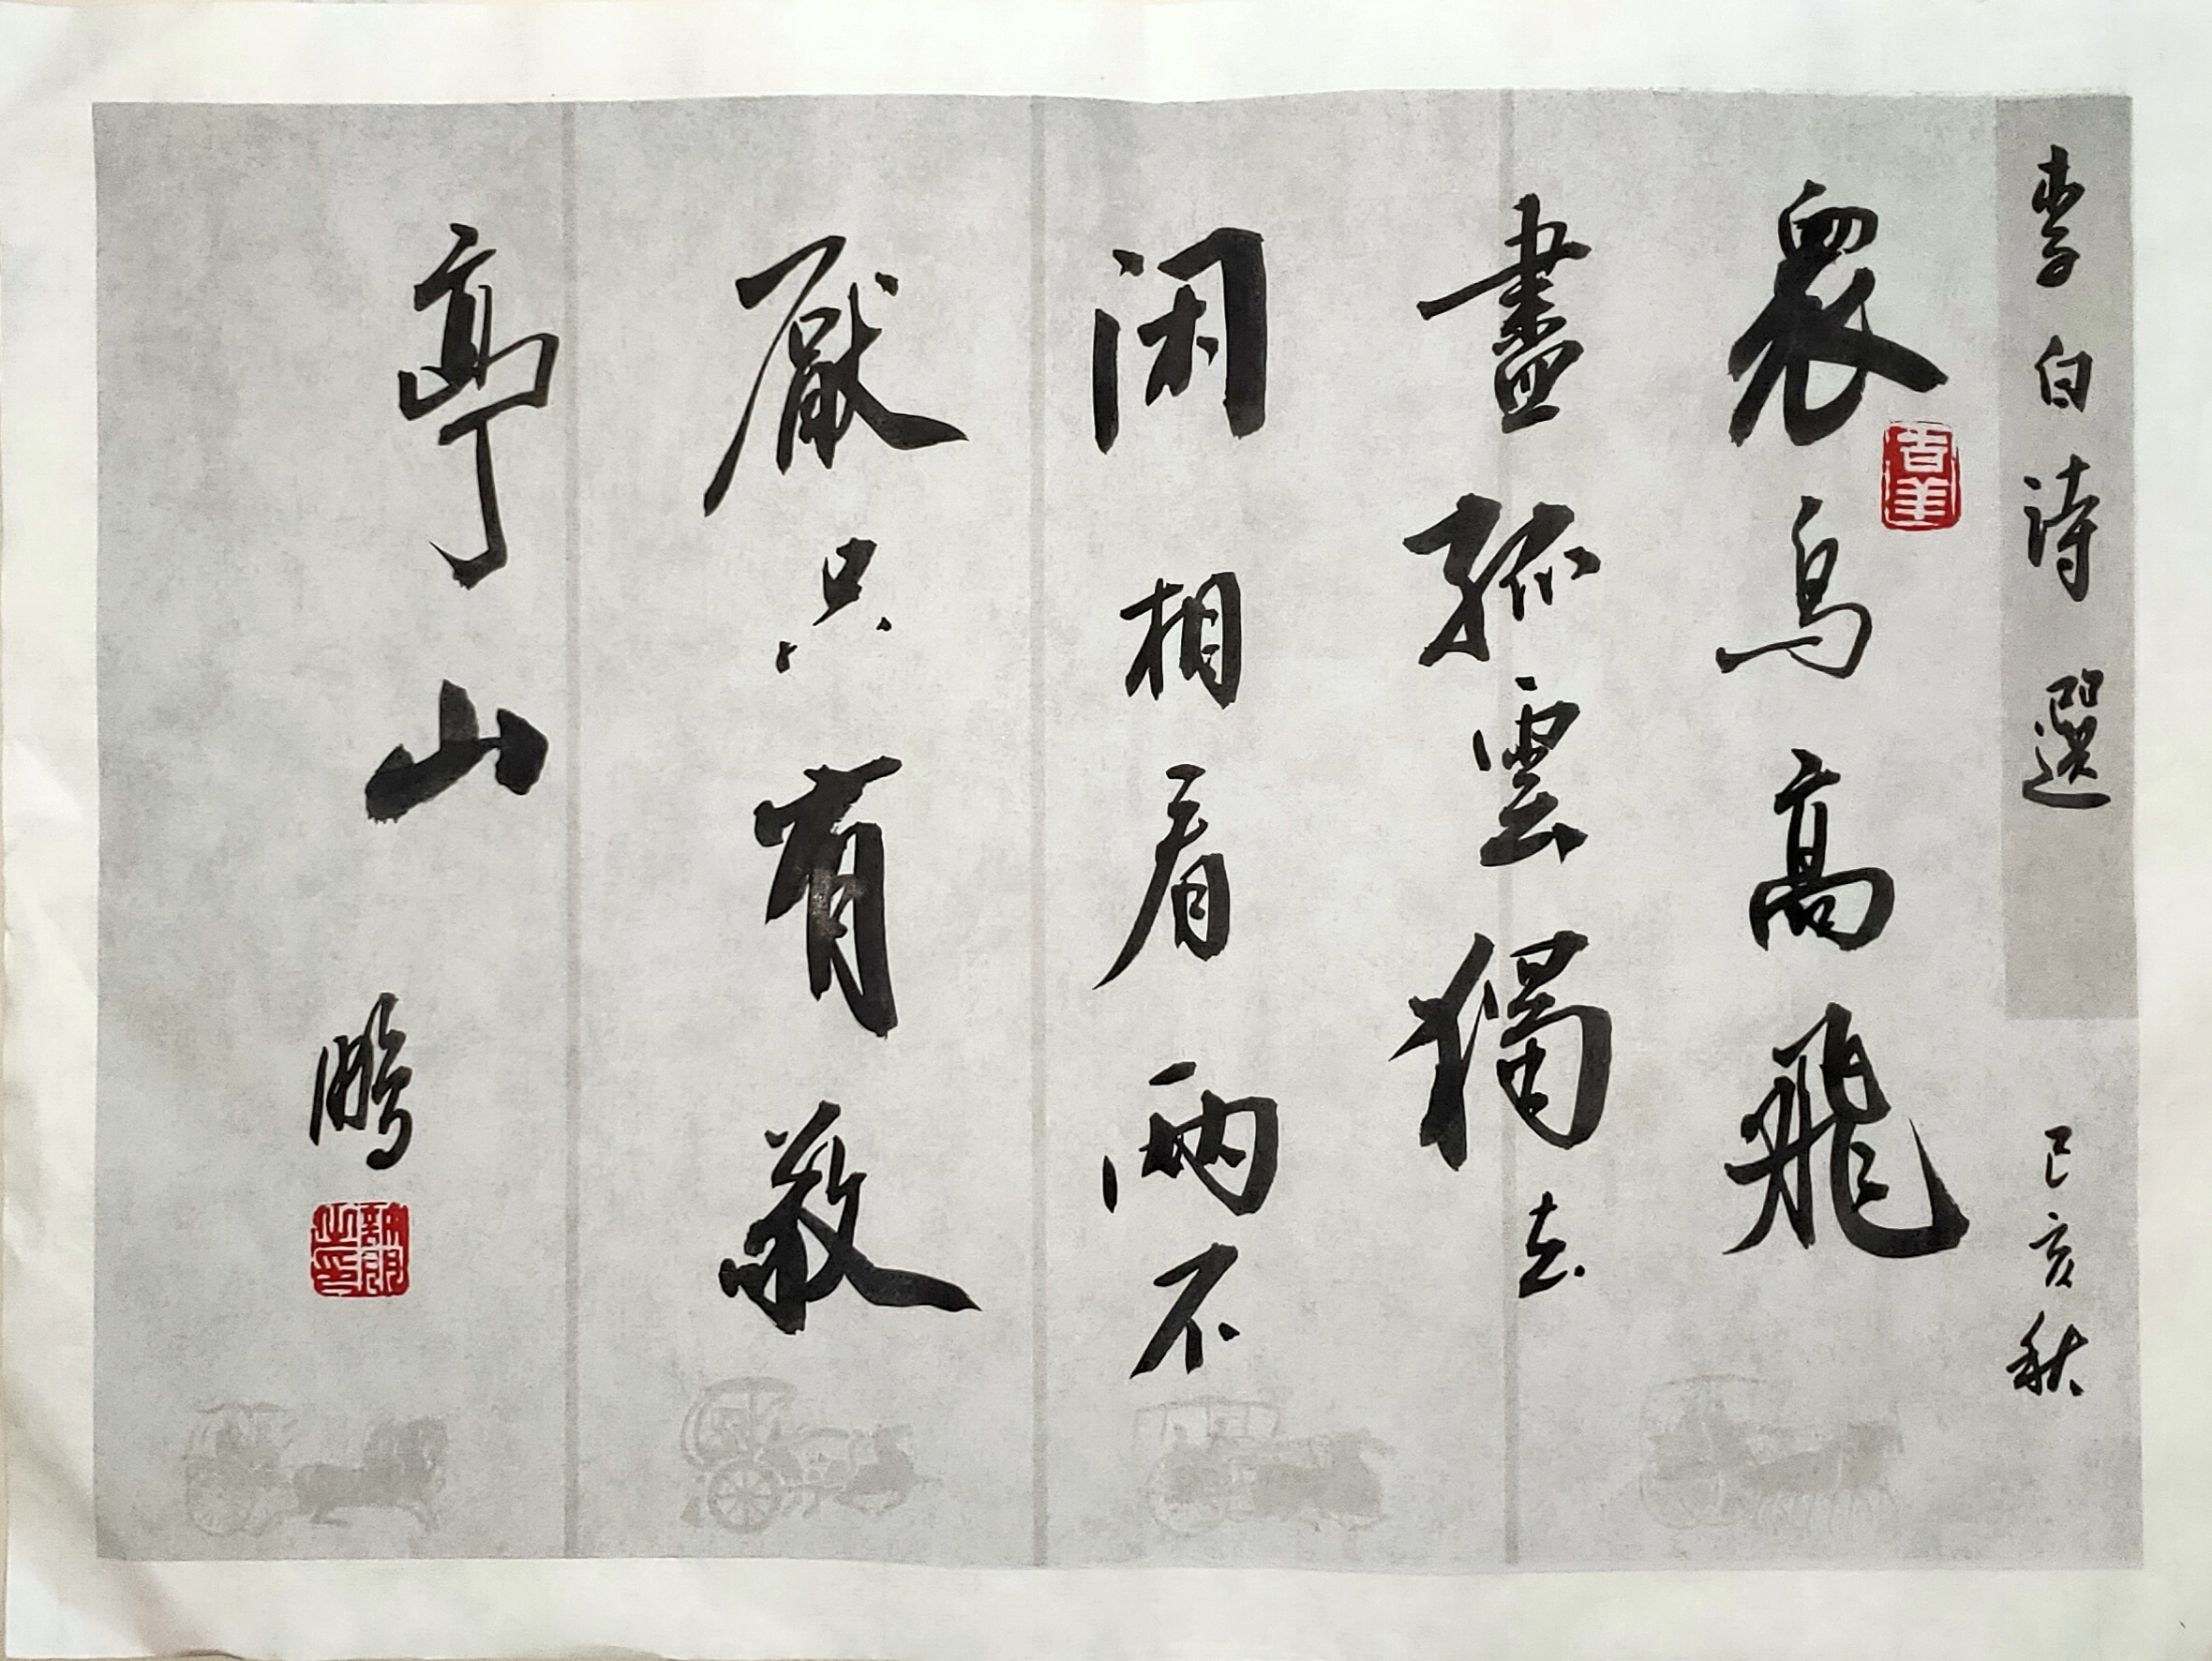 李白诗選 己亥秋
衆鳥高飛
盡孤雲獨去
闲相看兩不
厭只有敬
亭山 鵬
吉羊